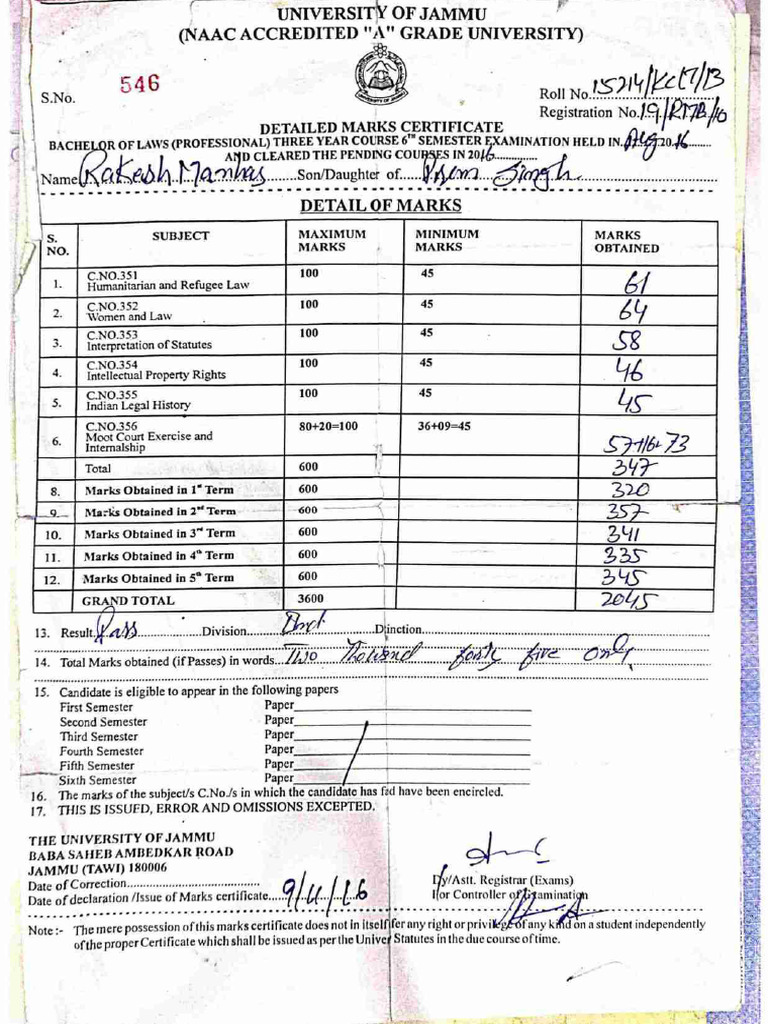 UNIVERSITY OF JAMMU
(NAAC ACCREDITED "A" GRADE UNIVERSITY)
S.No. 546
Roll No. 15214/KCLT/13
Registration No.
DETAILED MARKS CERTIFICATE
BACHELOR OF LAWS (PROFESSIONAL) THREE YEAR COURSE 6TH SEMESTER EXAMINATION HELD IN. Aug 2016
AND CLEARED THE PENDING COURSES IN 2016
Name Rakesh Manhas Son/Daughter of Prem Singh
DETAIL OF MARKS
S. NO. SUBJECT MAXIMUM MARKS MINIMUM MARKS MARKS OBTAINED
1. C.NO.351 Humanitarian and Refugee Law 100 45 61
2. C.NO.352 Women and Law 100 45 64
3. C.NO.353 Interpretation of Statutes 100 45 58
4. C.NO.354 Intellectual Property Rights 100 45 46
5. C.NO.355 Indian Legal History 100 45 45
6. C.NO.356 Moot Court Exercise and Internalship 80+20=100 36+09=45 57+16= 73
Total 600 347
8. Marks Obtained in 1st Term 600 320
9. Marks Obtained in 2nd Term 600 357
10. Marks Obtained in 3rd Term 600 341
11. Marks Obtained in 4th Term 600 335
12. Marks Obtained in 5th Term 600 345
GRAND TOTAL 3600 2045
13. Result Pass Division Dinction
14. Total Marks obtained (if Passes) in words Two Thousand forty five only
15. Candidate is eligible to appear in the following papers
First Semester Paper
Second Semester Paper
Third Semester Paper
Fourth Semester Paper
Fifth Semester Paper
Sixth Semester Paper
16. The marks of the subject/s C.No./s in which the candidate has fad have been encircled.
17. THIS IS ISSUED, ERROR AND OMISSIONS EXCEPTED.
THE UNIVERSITY OF JAMMU
BABA SAHEB AMBEDKAR ROAD
JAMMU (TAWI) 180006
Date of Correction
Date of declaration /Issue of Marks certificate 9/11/16
Dy/Astt. Registrar (Exams)
For Controller of Examination
Note :- The mere possession of this marks certificate does not in itself fer any right or privilege of any kind on a student independently
of the proper Certificate which shall be issued as per the Univer Statutes in the due course of time.